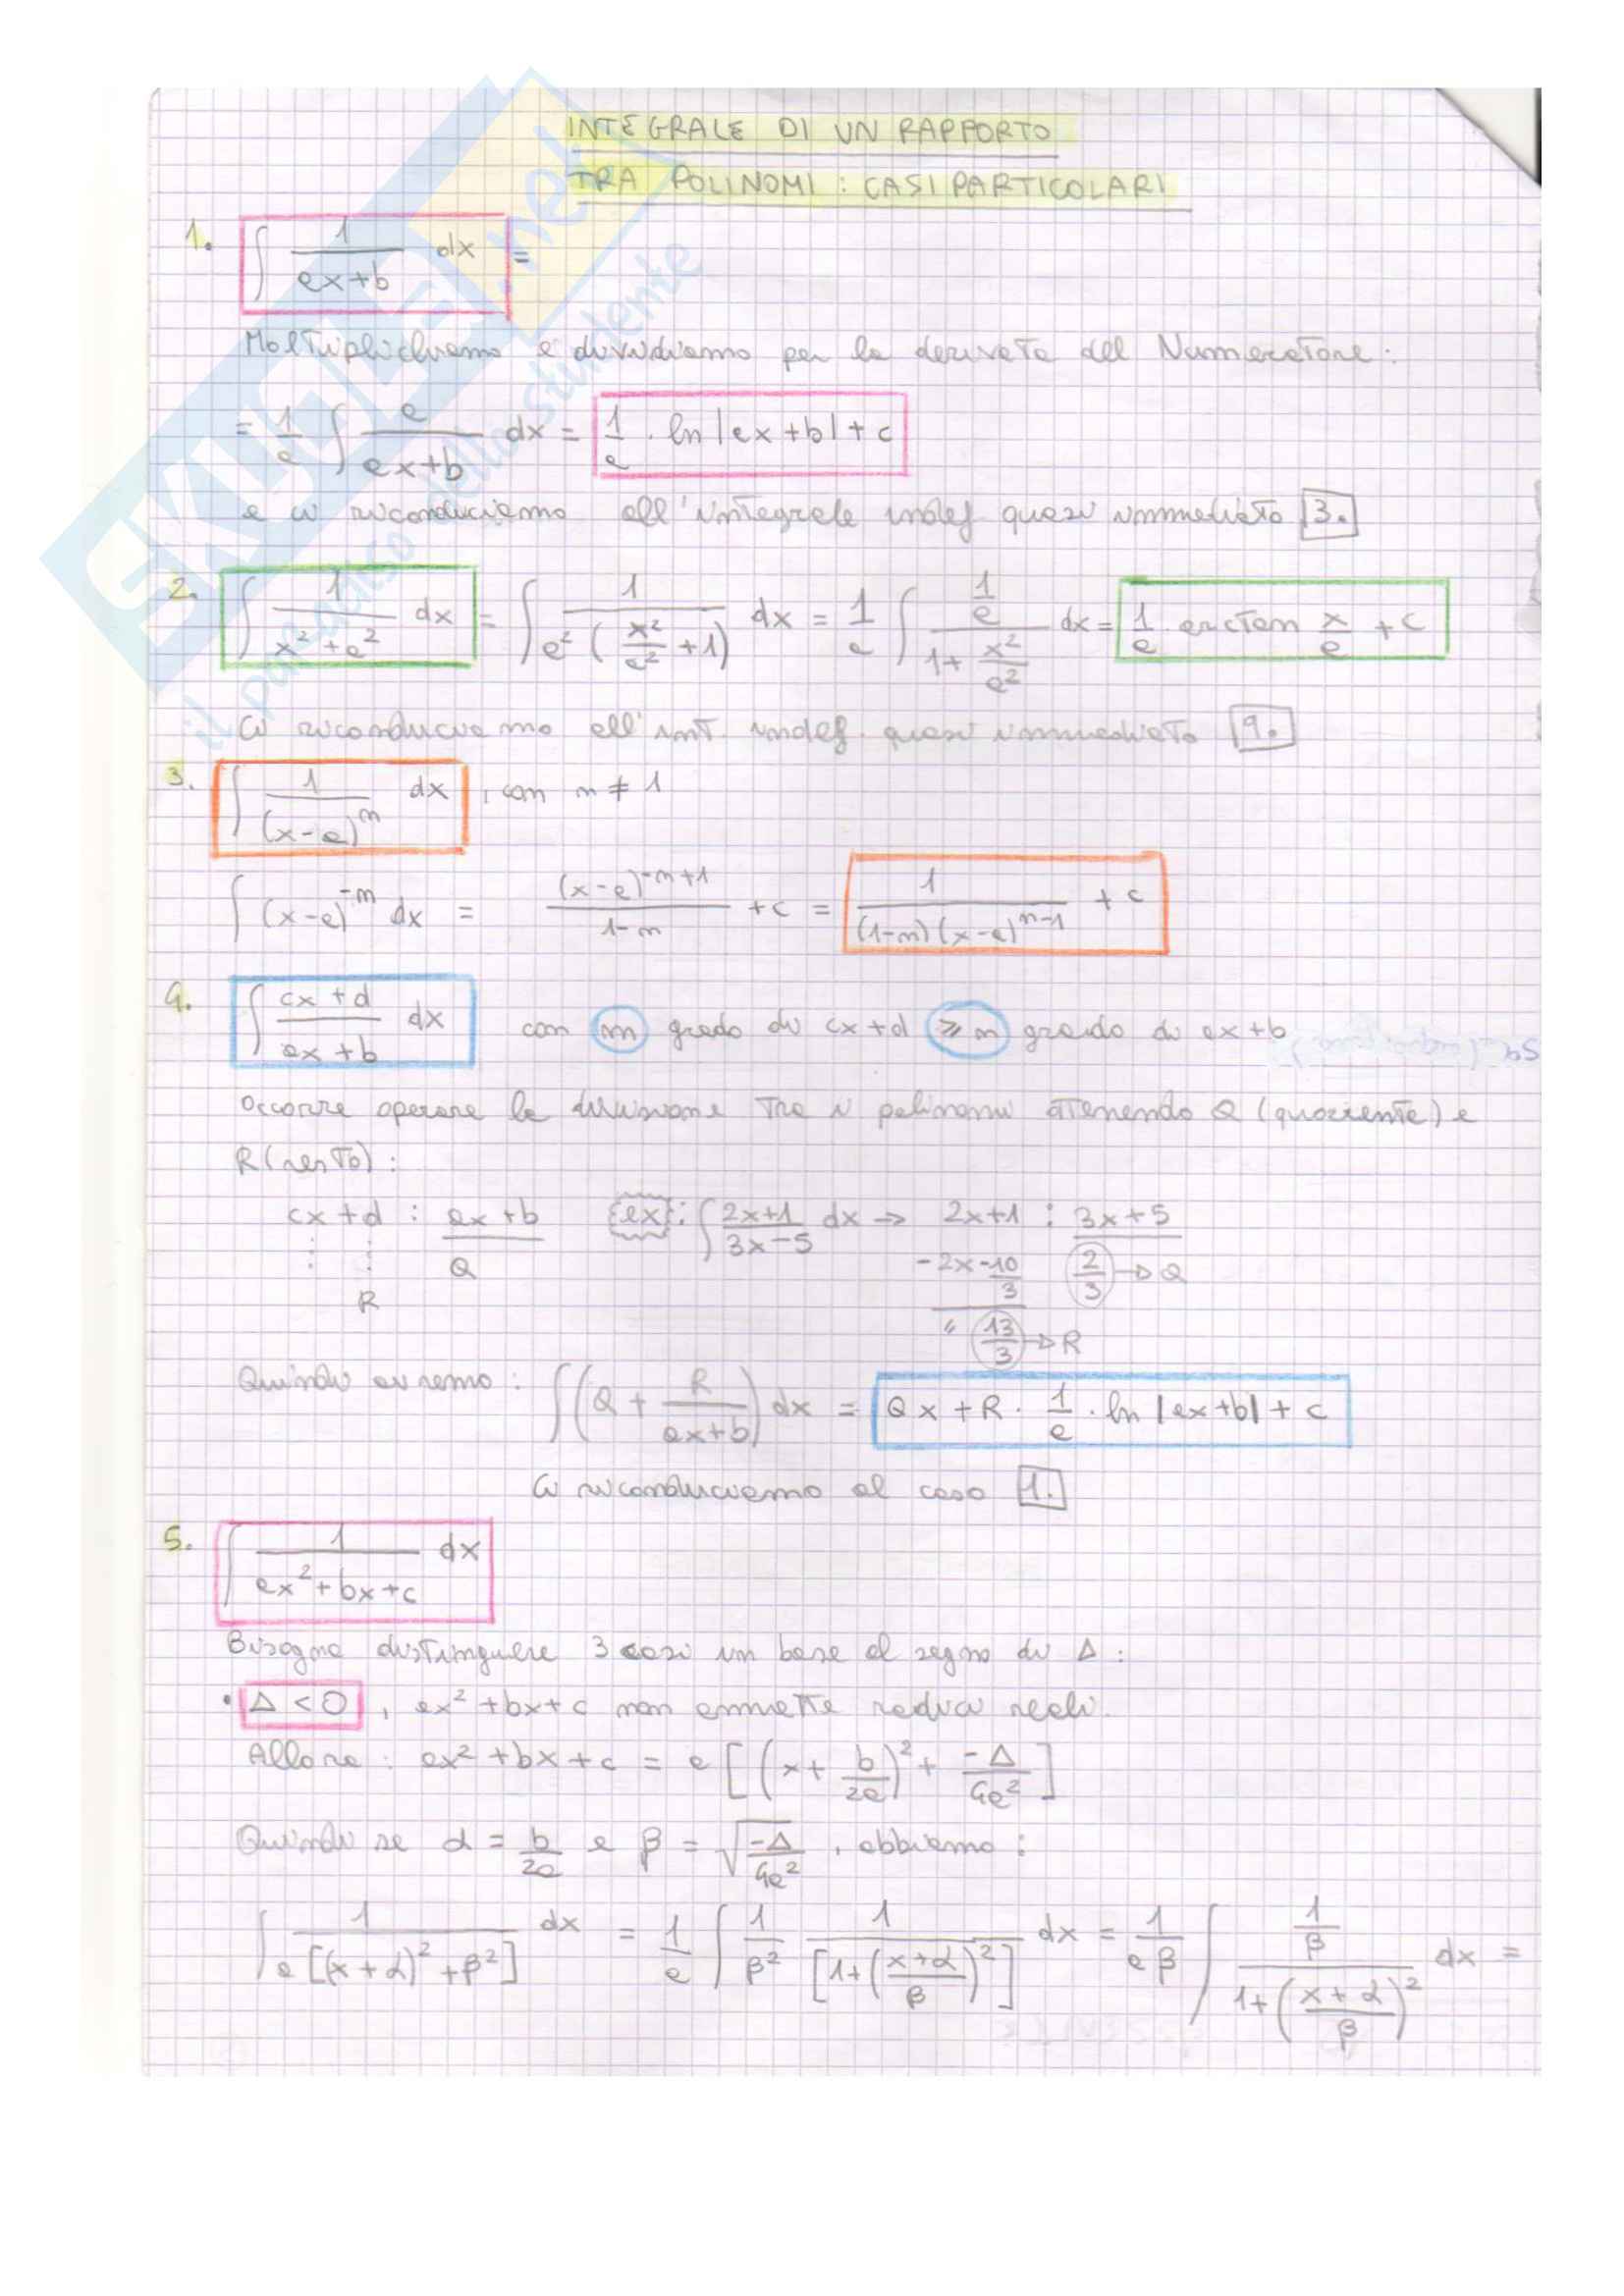 INTEGRALE DI UN RAPPORTO
TRA POLINOMI : CASI PARTICOLARI
1. ∫ 1/(ax+b) dx =
Moltiplichiamo e dividiamo per la derivata del Numeratore :
= 1/a ∫ a/(ax+b) dx = 1/a · ln |ax+b| + c
e ci riconduciamo all'integrale indef quasi immediato 3.
2. ∫ 1/(x²+a²) dx = ∫ 1/(a²(x²/a² + 1)) dx = 1/a ∫ (1/a)/(1 + x²/a²) dx = 1/a arctan x/a + c
Ci riconduciamo all'int. indef. quasi immediato 9.
3. ∫ 1/(x-a)ⁿ dx , con n ≠ 1
∫ (x-a)⁻ⁿ dx = (x-a)⁻ⁿ⁺¹/(1-n) + c = 1/((1-n)(x-a)ⁿ⁻¹) + c
4. ∫ (cx+d)/(ax+b) dx con m grado di cx+d ≥ n grado di ax+b
Occorre operare la divisione tra i polinomi ottenendo Q (quoziente) e
R (resto) :
cx+d : ax+b {ex}: ∫ (2x+1)/(3x-5) dx → 2x+1 : 3x+5
⋮ ⋮ Q -2x-10/3 2/3 → Q
R " 13/3 → R
Quindi avremo : ∫ (Q + R/(ax+b)) dx = Qx + R · 1/a · ln |ax+b| + c
Ci riconduciamo al caso 1.
5. ∫ 1/(ax²+bx+c) dx
Bisogna distinguere 3 casi in base al segno di Δ :
• Δ < 0 , ax²+bx+c non ammette radici reali.
Allora : ax²+bx+c = a [(x + b/2a)² + -Δ/4a²]
Quindi se α = b/2a e β = √(-Δ/4a²) , abbiamo :
∫ 1/(a[(x+α)²+β²]) dx = 1/a ∫ 1/β² 1/[1+((x+α)/β)²] dx = 1/aβ ∫ (1/β)/(1+((x+α)/β)²) dx =
SKUOLA.net
il paradiso dello studente